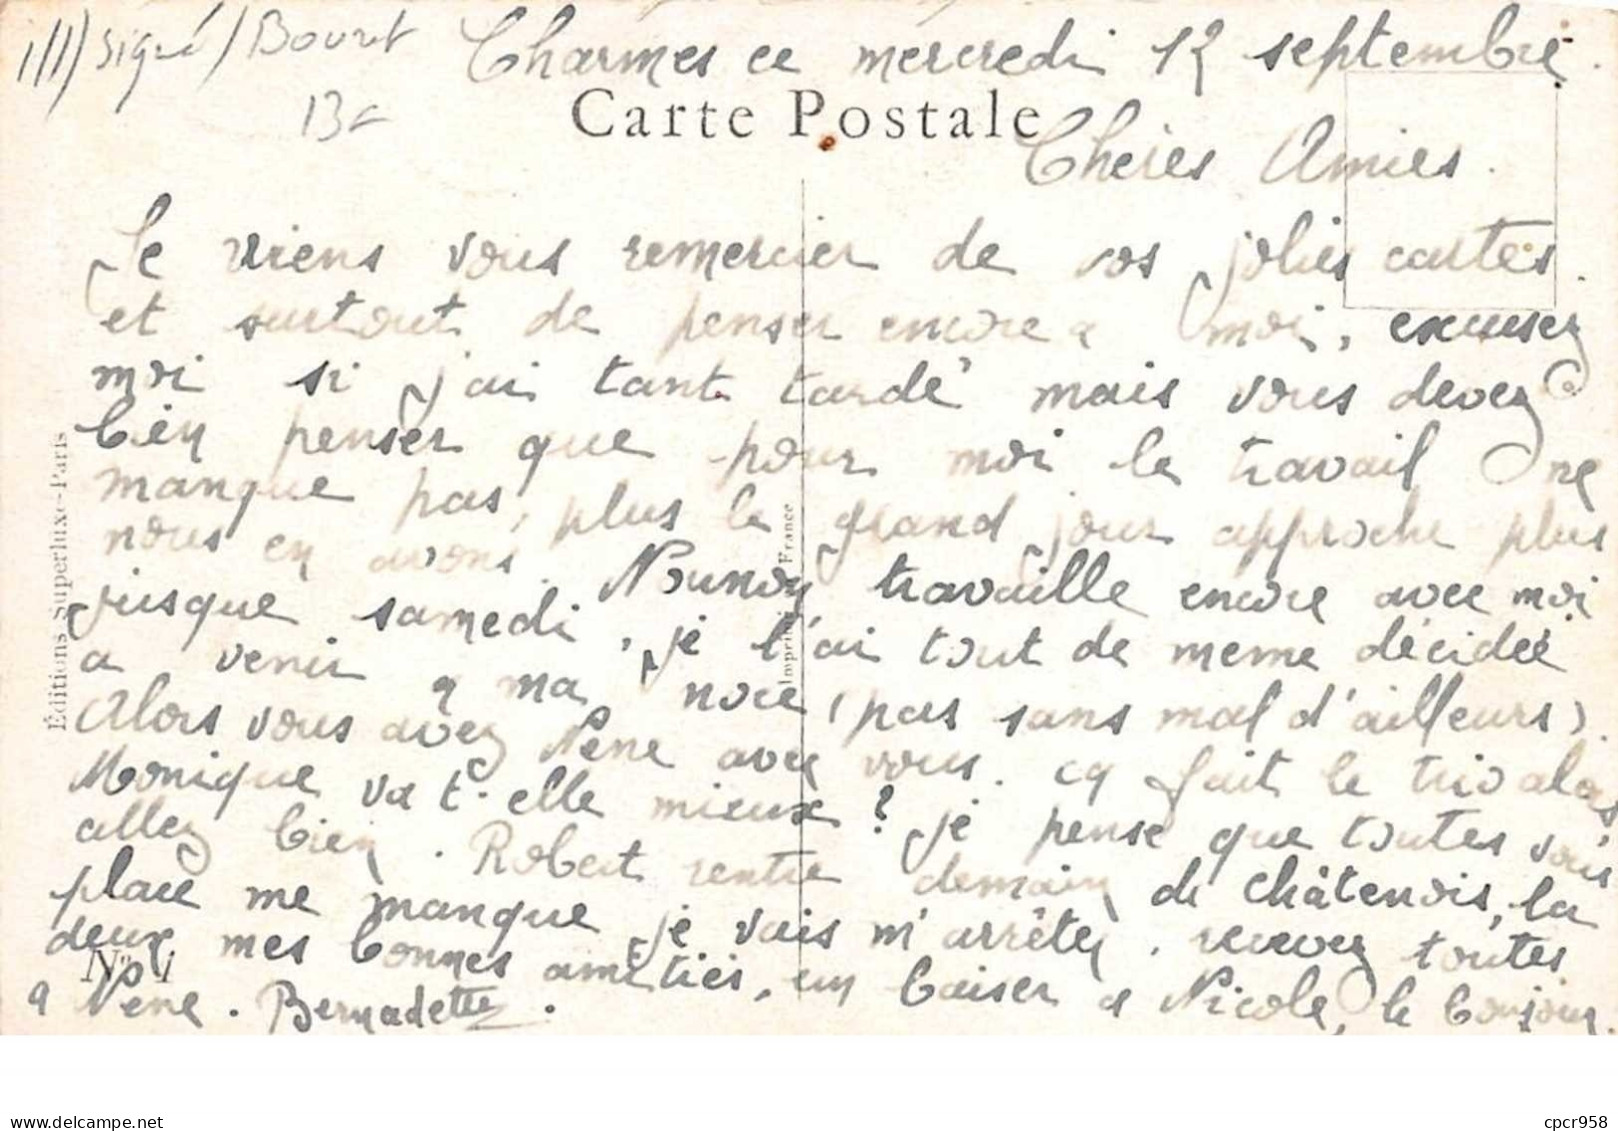 111) signé / Bouret
Charmes ce mercredi 12 septembre.
Carte Postale
Chères Amies.
Je viens vous remercier de vos jolies cartes.
et surtout de penser encore a moi, excusez
moi si j'ai tant tardé mais vous devez
bien penser que pour moi le travail ne
manque pas, plus le grand jour approche plus
nous en avons. Nounou travaille encore avec moi
jusque samedi, je l'ai tout de meme décidée
a venir a ma noce, (pas sans mal d'ailleurs).
Alors vous avez Nene avec vous. ça fait le trio alors
Monique va t-elle mieux? je pense que toutes vous
allez bien. Robert rentre demain de châtenois, la
place me manque je vais m'arrêter. recevez toutes
deux mes bonnes amitiés, un baiser a Nicole, le bonjour
a Nene. Bernadette.
Éditions Superluxe-Paris
Imprimé en France
N° 1
delcampe.net
cpcr958